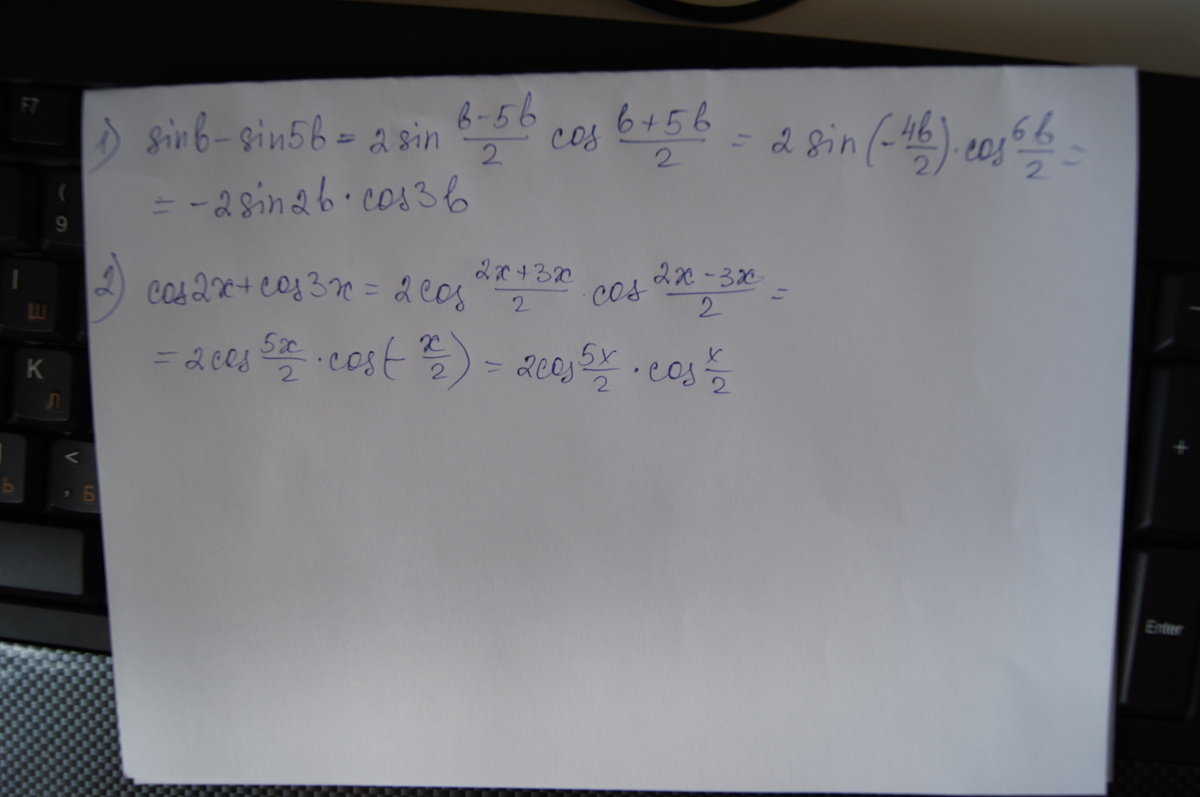 F7
( 9
I Ш
К Л
< , Б
Ь
+
Enter
1) sinb - sin5b = 2 sin (b-5b)/2 cos (b+5b)/2 = 2 sin(-4b/2)·cos 6b/2 =
= -2sin2b·cos3b
2) cos2x+cos3x = 2cos (2x+3x)/2 · cos (2x-3x)/2 =
= 2cos 5x/2 · cos(- x/2) = 2cos 5x/2 · cos x/2